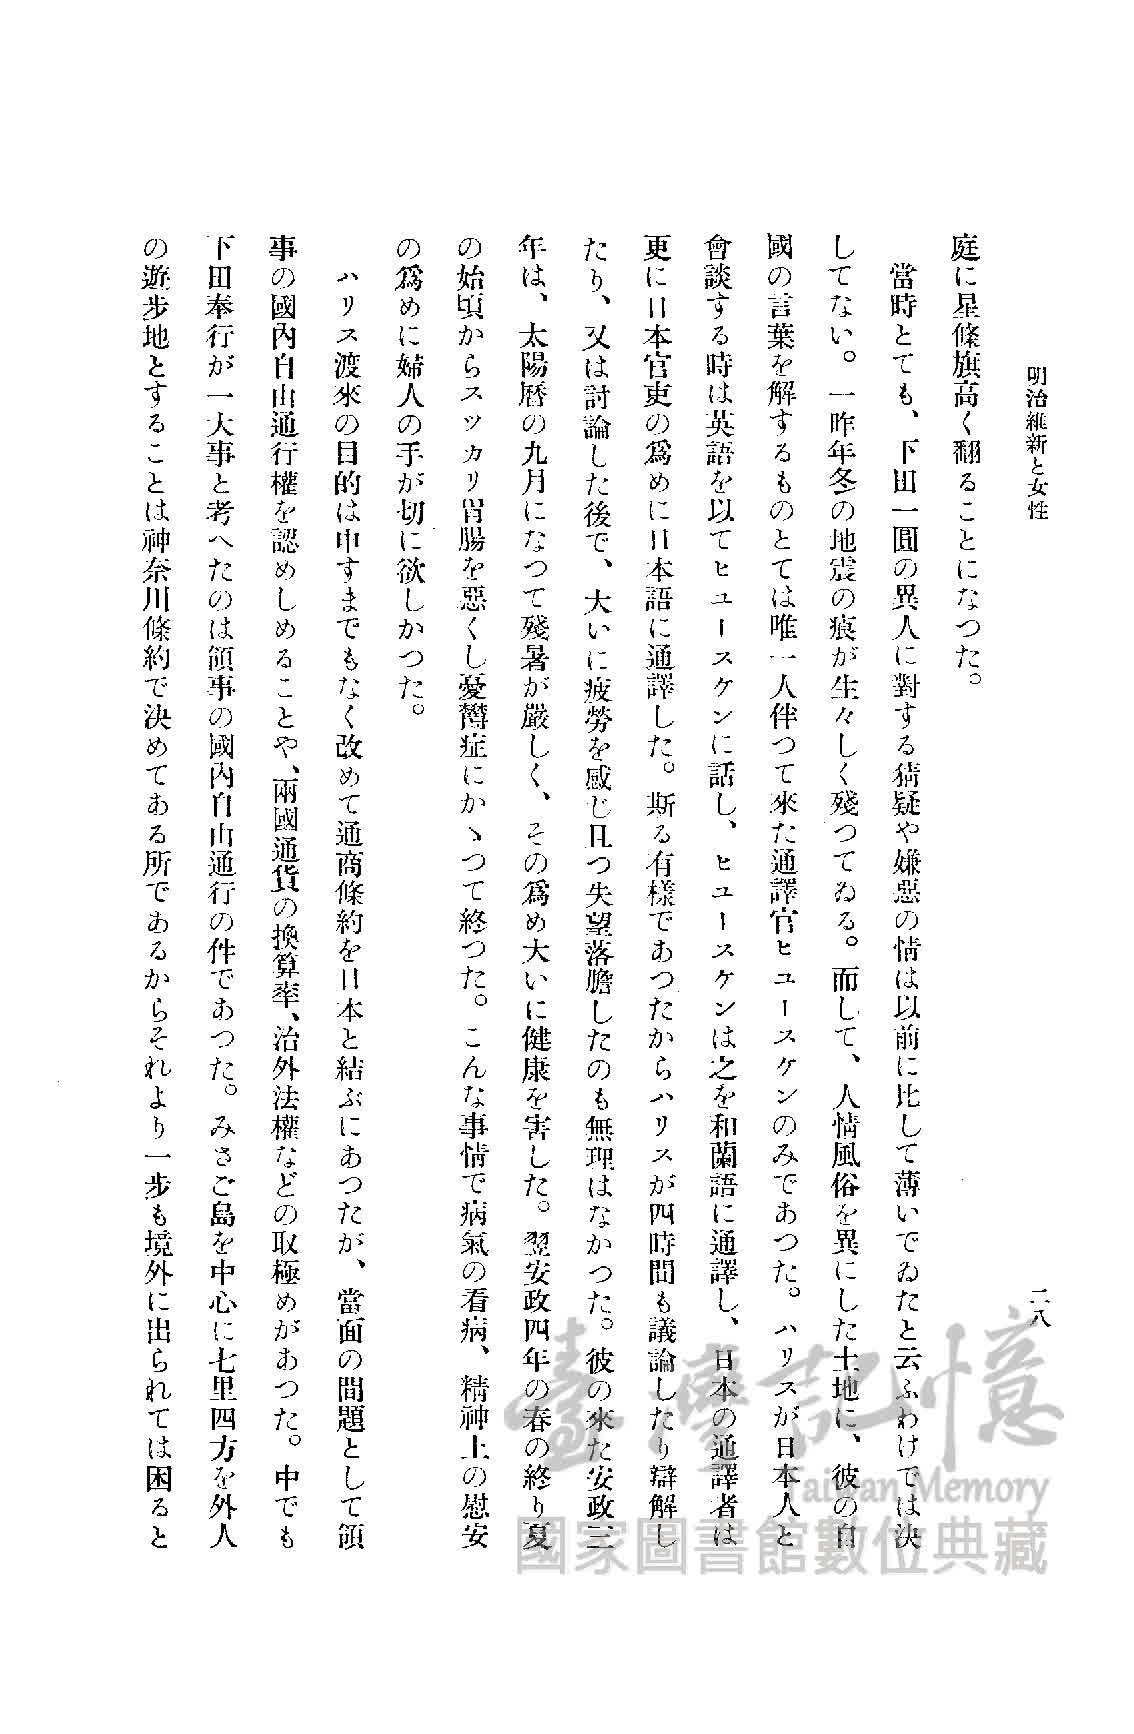 明治維新と女性
二八
庭に星條旗高く翻ることになつた。
當時とても、下田一圓の異人に對する猜疑や嫌惡の情は以前に比して薄いでゐたと云ふわけでは決
してない。一昨年冬の地震の痕が生々しく殘つてゐる。而して、人情風俗を異にした土地に、彼の自
國の言葉を解するものとては唯一人伴つて來た通譯官ヒユースケンのみであつた。ハリスが日本人と
會談する時は英語を以てヒユースケンに話し、ヒユースケンは之を和蘭語に通譯し、日本の通譯者は
更に日本官吏の爲めに日本語に通譯した。斯る有樣であつたからハリスが四時間も議論したり辯解し
たり、又は討論した後で、大いに疲勞を感じ且つ失望落膽したのも無理はなかつた。彼の來た安政三
年は、太陽曆の九月になつて殘暑が嚴しく、その爲め大いに健康を害した。翌安政四年の春の終り夏
の始頃からスツカリ胃腸を惡くし憂鬱症にかゝつて終つた。こんな事情で病氣の看病、精神上の慰安
の爲めに婦人の手が切に欲しかつた。
ハリス渡來の目的は申すまでもなく改めて通商條約を日本と結ぶにあつたが、當面の問題として領
事の國內自由通行權を認めしめることや、兩國通貨の換算率、治外法權などの取極めがあつた。中でも
下田奉行が一大事と考へたのは領事の國內自由通行の件であつた。みさご島を中心に七里四方を外人
の遊步地とすることは神奈川條約で決めてある所であるからそれより一步も境外に出られては困ると
臺灣記憶
Taiwan Memory
國家圖書館數位典藏